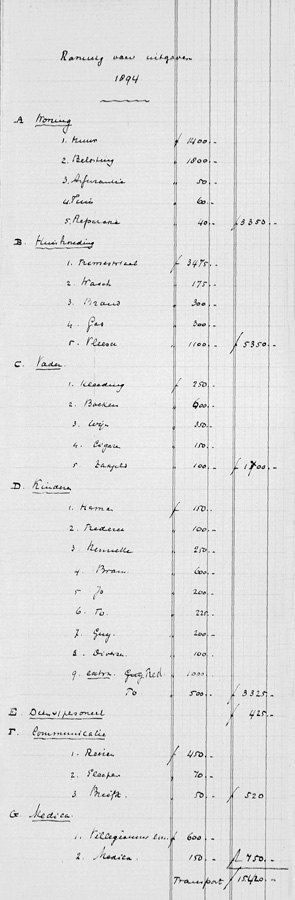 Raming van uitgaven
1894
A Woning
1. Huur f 1400.-
2. Belasting " 1800.-
3. Assurantie " 50.-
4. Tuin " 60.-
5. Reparatie " 40.- f 3350.-
B. Huishouding
1. f 3475.-
2. Wasch " 175.-
3. Brand " 300.-
4. Gas " 300.-
5. Vleesch " 1100.- f 5350.-
C. Vader.
1. Kleeding f 250.-
2. Boeken " 600.-
3. Wijn " 350.-
4. Cigaren " 150.-
5. " 100.- f 1700.-
D. Kinderen
1. Mama f 150.-
2. " 100.-
3 Henriette " 250.-
4. Bram " 600.-
5. Jo " 200.-
6. To. " 225.-
7. Guy. " 200.-
8. Diverse. " 100.-
9. extra. Guy, Red. " 1000.-
To " 500.- f 3325.-
E Dienstpersoneel f 425.-
F. Communicatie
1. Reizen f 450.-
2. Sleeper " 70.-
3. " 50.- f 520
G. Medica.
1. f 600.-
2. Medica. " 150.- f 750.-
Transport f 15420.-